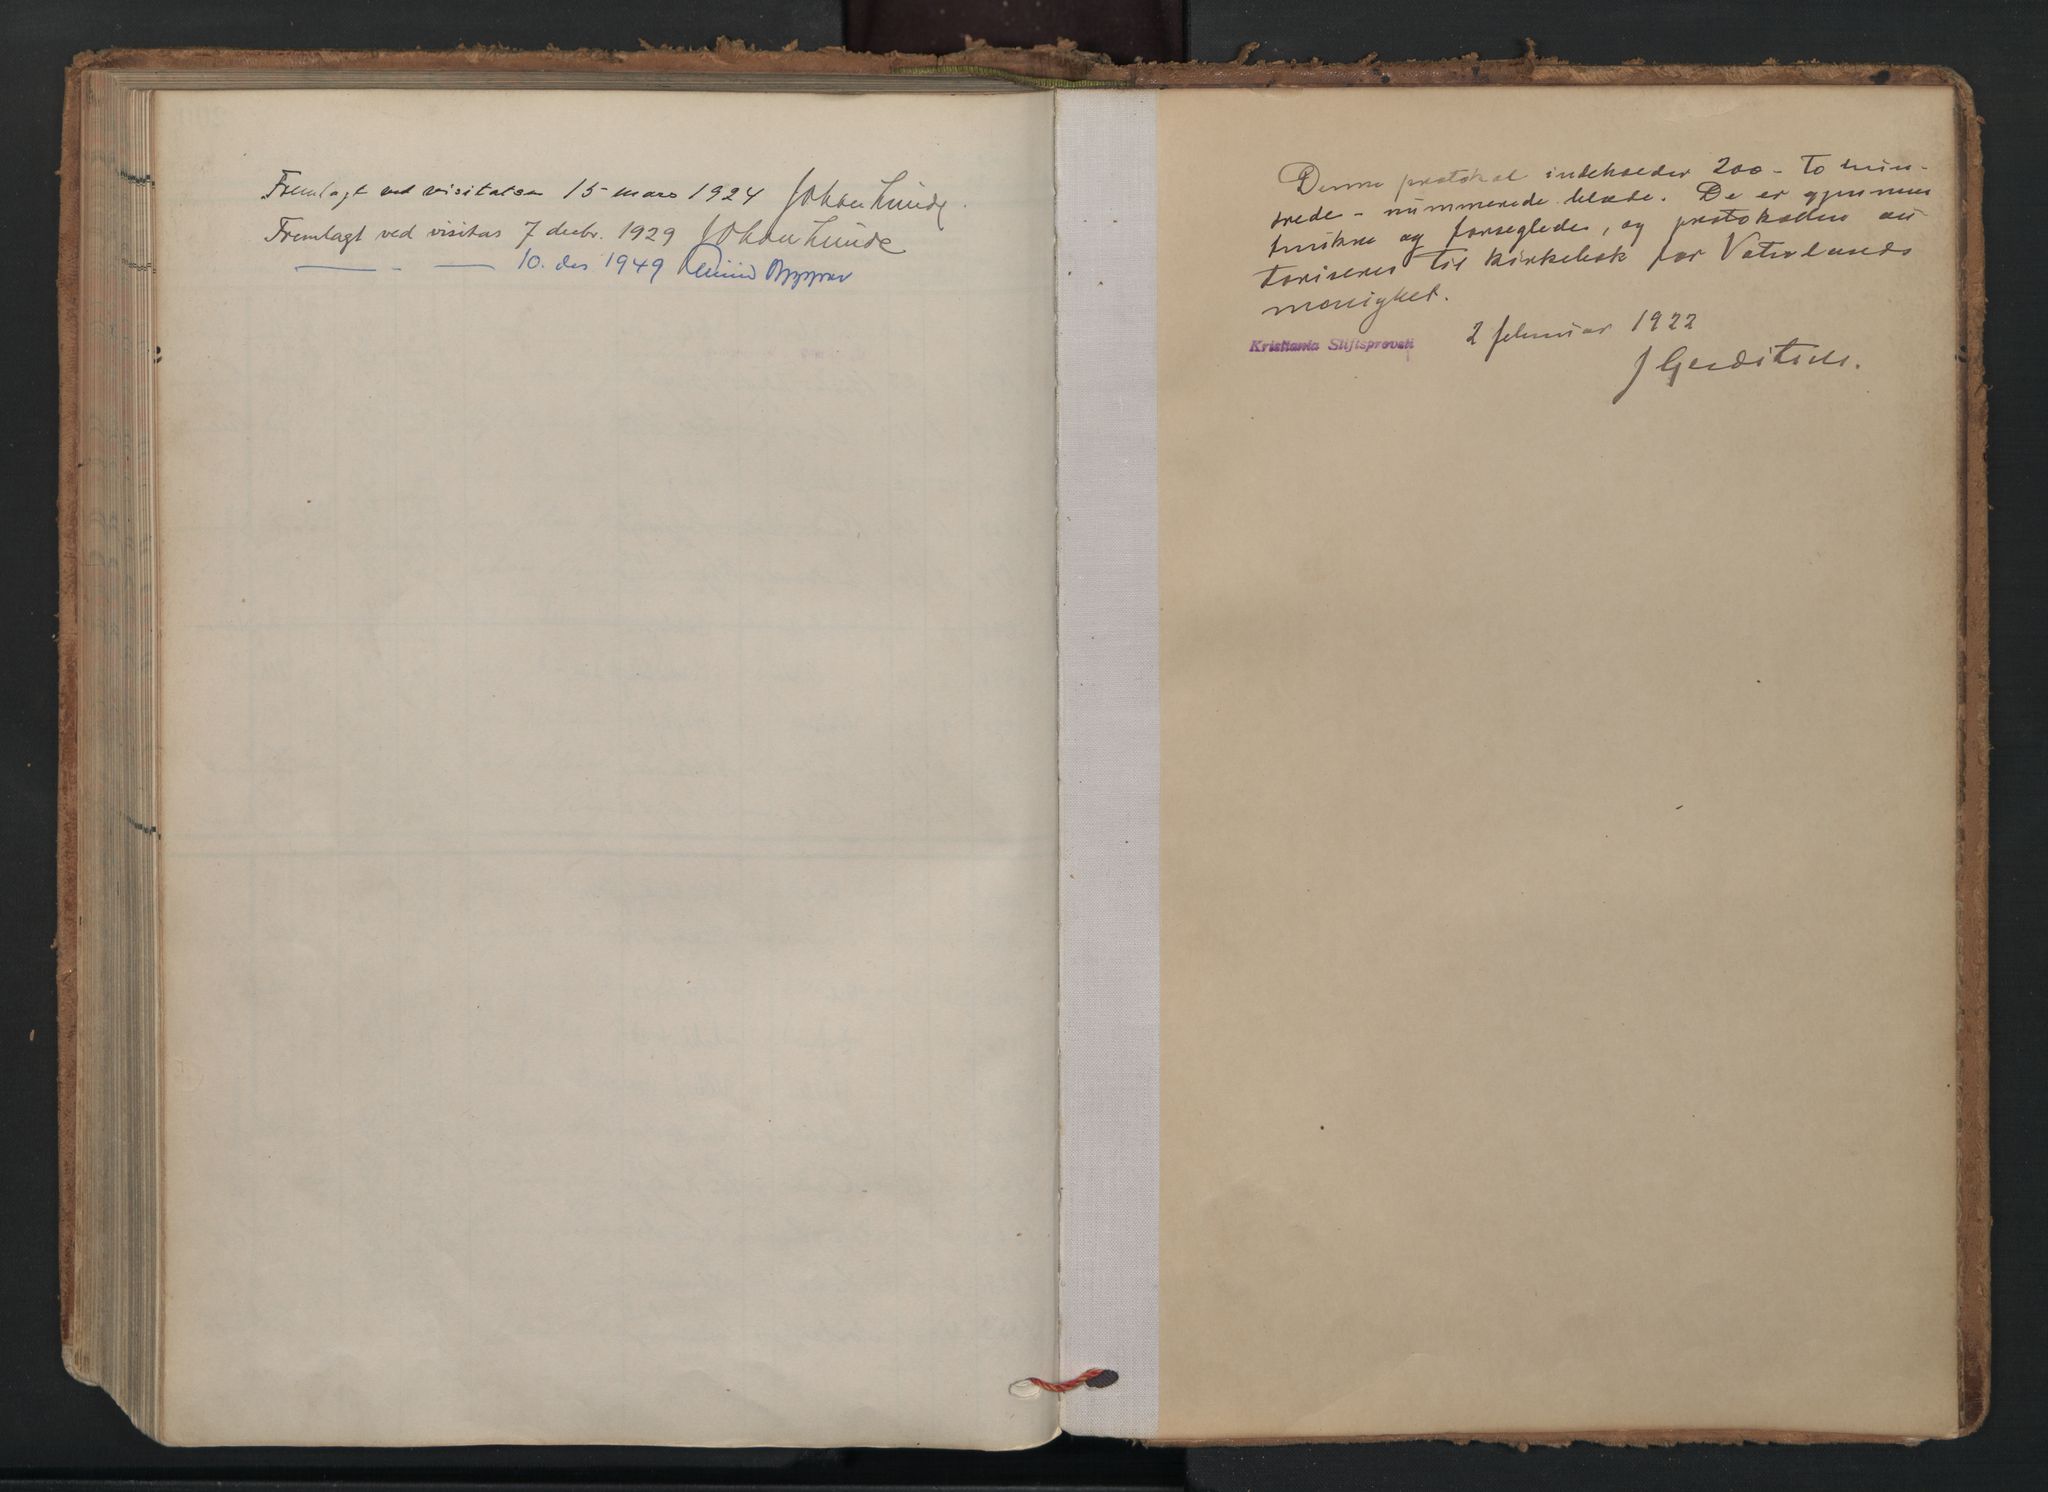 Fremlagt ved visitatsen 15 mars 1924 Johan Lunde.
Fremlagt ved visitas 7 decbr. 1929 Johan Lunde
— - — 10. des 1949
Denne protokol indeholder 200 - to hun-
drede - nummerede blade. De er gjennem
trukne og forseglede, og protokollen au
toriseres til kirkebok for Vaterlands
menighet.
Kristiania Stiftsprovsti
2 februar 1922